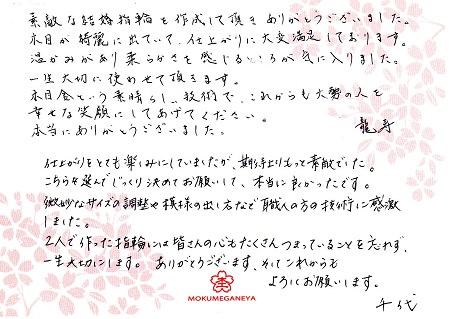 素敵な結婚指輪を作成して頂きありがとうございました。
木目が綺麗に出ていて、仕上がりに大変満足しております。
温かみがあり柔らかさを感じるところが気に入りました。
一生大切に使わせて頂きます。
木目金という素晴らしい技術で、これからも大勢の人を
幸せな笑顔にしてあげてください。
本当にありがとうございました。
龍寿
仕上がりをとても楽しみにしていましたが、期待よりもっと素敵でした。
こちらを選んでじっくり決めてお願いして、本当に良かったです。
微妙なサイズの調整や模様の出し方など職人の方の技術に感激
しました。
2人で作った指輪には皆さんの心もたくさんつまっていることを忘れず、
一生大切にします。ありがとうございます、そしてこれからも
よろしくお願いします。
千代
MOKUMEGANEYA